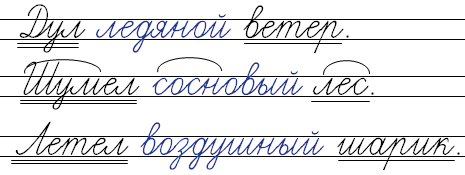 Дул ледяной ветер.
Шумел сосновый лес.
Летел воздушный шарик.